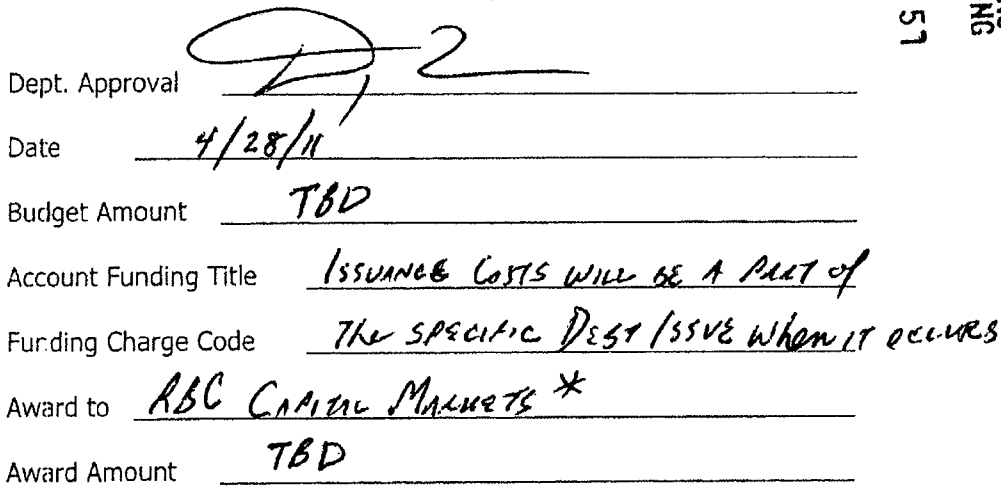 NG
57
Dept. Approval
Date 4/28/11
Budget Amount TBD
Account Funding Title ISSUANCE COSTS WILL BE A PART of
Funding Charge Code The SPECIFIC DEBT ISSUE When IT OCCURS
Award to RBC CAPITAL MARKETS *
Award Amount TBD